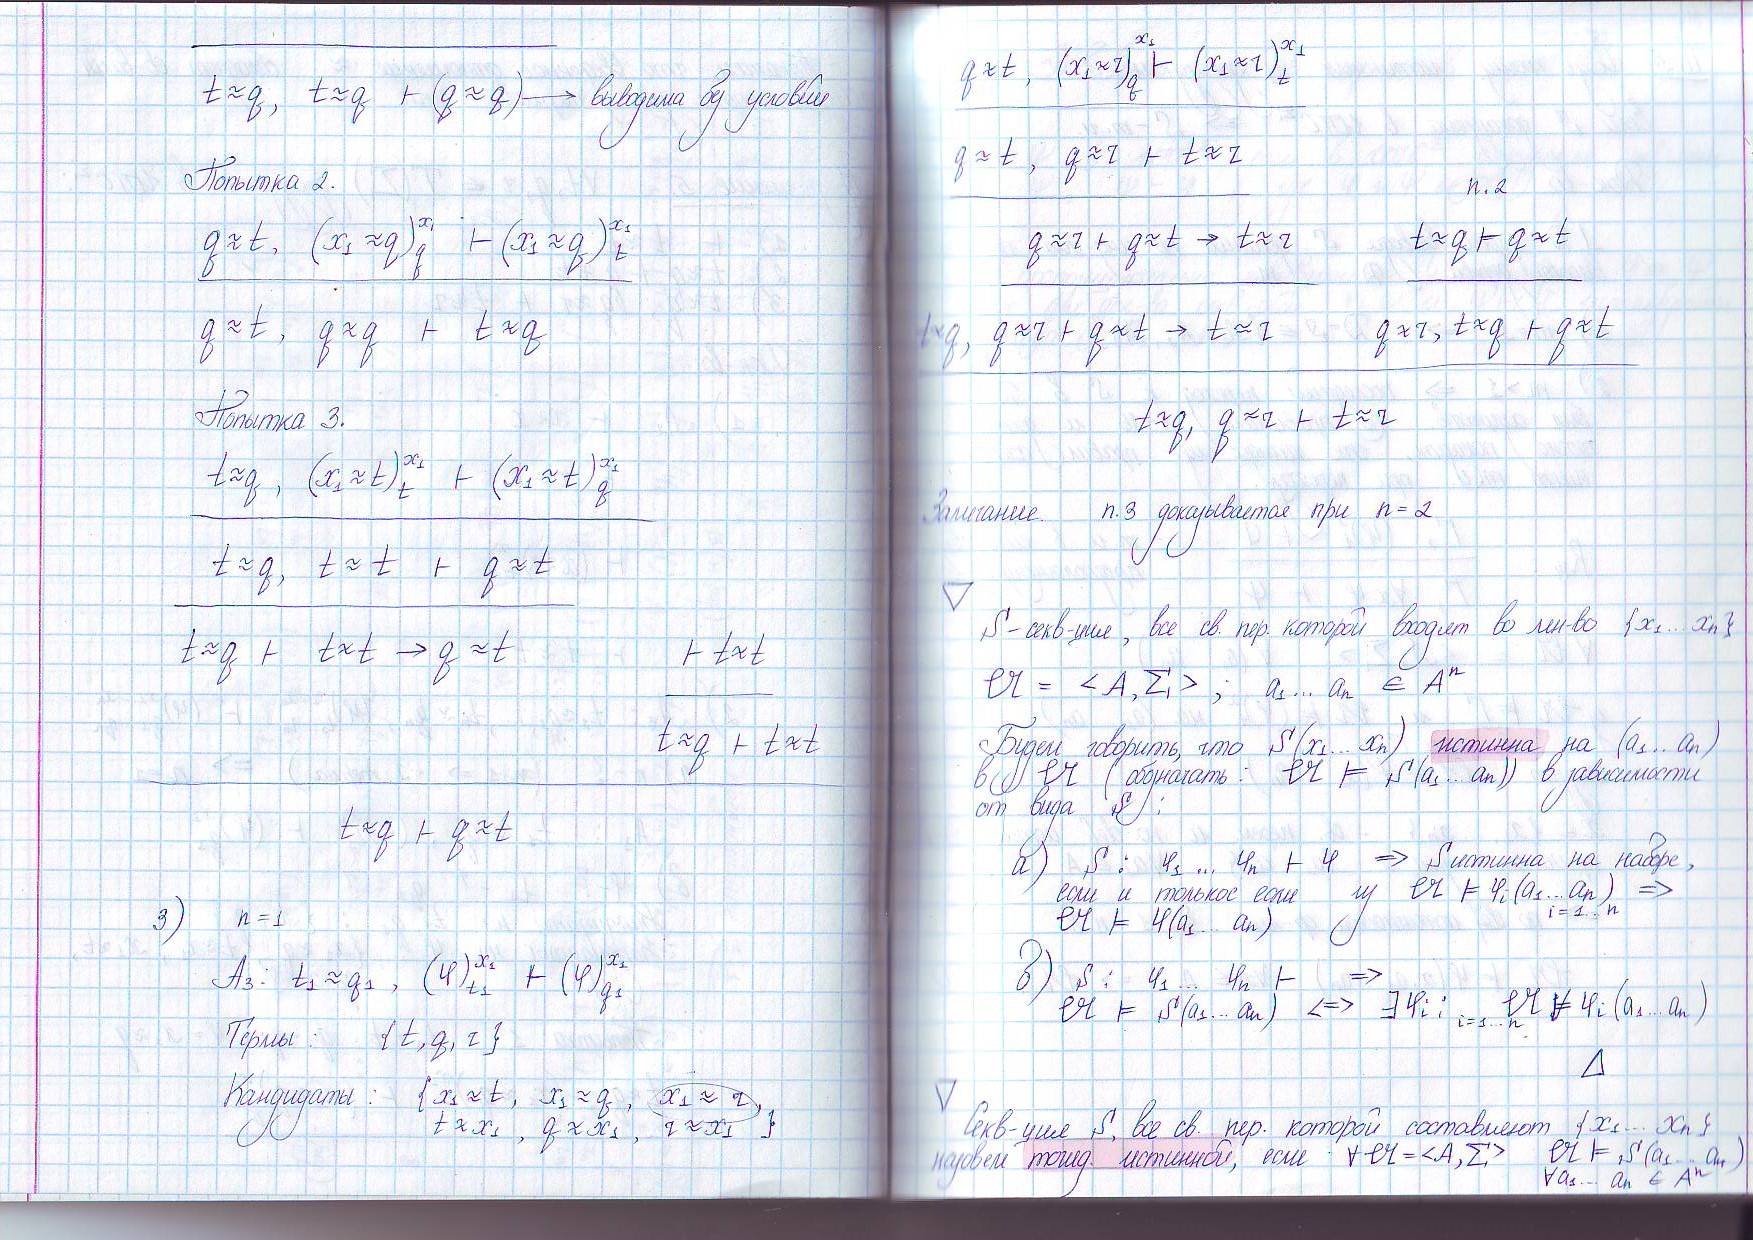 t≈q, t≈q ⊢ (q≈q) → выводима без условий
Попытка 2.
q≈t, (x₁≈q)^{x₁}_q ⊢ (x₁≈q)^{x₁}_t
q≈t, q≈q ⊢ t≈q
Попытка 3.
t≈q, (x₁≈t)^{x₁}_t ⊢ (x₁≈t)^{x₁}_q
t≈q, t≈t ⊢ q≈t
t≈q ⊢ t≈t → q≈t ⊢ t≈t
t≈q ⊢ t≈t
t≈q ⊢ q≈t
3) n=1
Аз: t₁≈q₁, (φ)^{x₁}_{t₁} ⊢ (φ)^{x₁}_{q₁}
Термы: {t, q, r}
Кандидаты: {x₁≈t, x₁≈q, x₁≈r,
t≈x₁, q≈x₁, r≈x₁}
q≈t, (x₁≈r)^{x₁}_q ⊢ (x₁≈r)^{x₁}_t
q≈t, q≈r ⊢ t≈r
п.2
q≈r ⊢ q≈t → t≈r t≈q ⊢ q≈t
t≈q, q≈r ⊢ q≈t → t≈r q≈r, t≈q ⊢ q≈t
t≈q, q≈r ⊢ t≈r
Замечание. п.3 доказывается при n=2
▽
S-секв-ция, все св. пер. которой входят во мн-во {x₁...xₙ}
𝔄 = <A, Σ>; a₁...aₙ ∈ Aⁿ
Будем говорить, что S(x₁...xₙ) истинна на (a₁...aₙ)
в 𝔄 (обозначать: 𝔄 ⊨ S(a₁...aₙ)) в зависимости
от вида S:
а) S: φ₁...φₙ ⊢ φ => S истинна на наборе,
если и только если из 𝔄 ⊨ φᵢ(a₁...aₙ) =>
i=1...n
𝔄 ⊨ φ(a₁...aₙ)
б) S: φ₁...φₙ ⊢ =>
𝔄 ⊨ S(a₁...aₙ) <=> ∃φᵢ: i=1...n 𝔄 ⊭ φᵢ(a₁...aₙ)
Δ
▽
Секв-ция S, все св. пер. которой составляют {x₁...xₙ}
назовем тожд. истинной, если ∀𝔄=<A,Σ> 𝔄 ⊨ S(a₁...aₙ)
∀a₁...aₙ ∈ Aⁿ